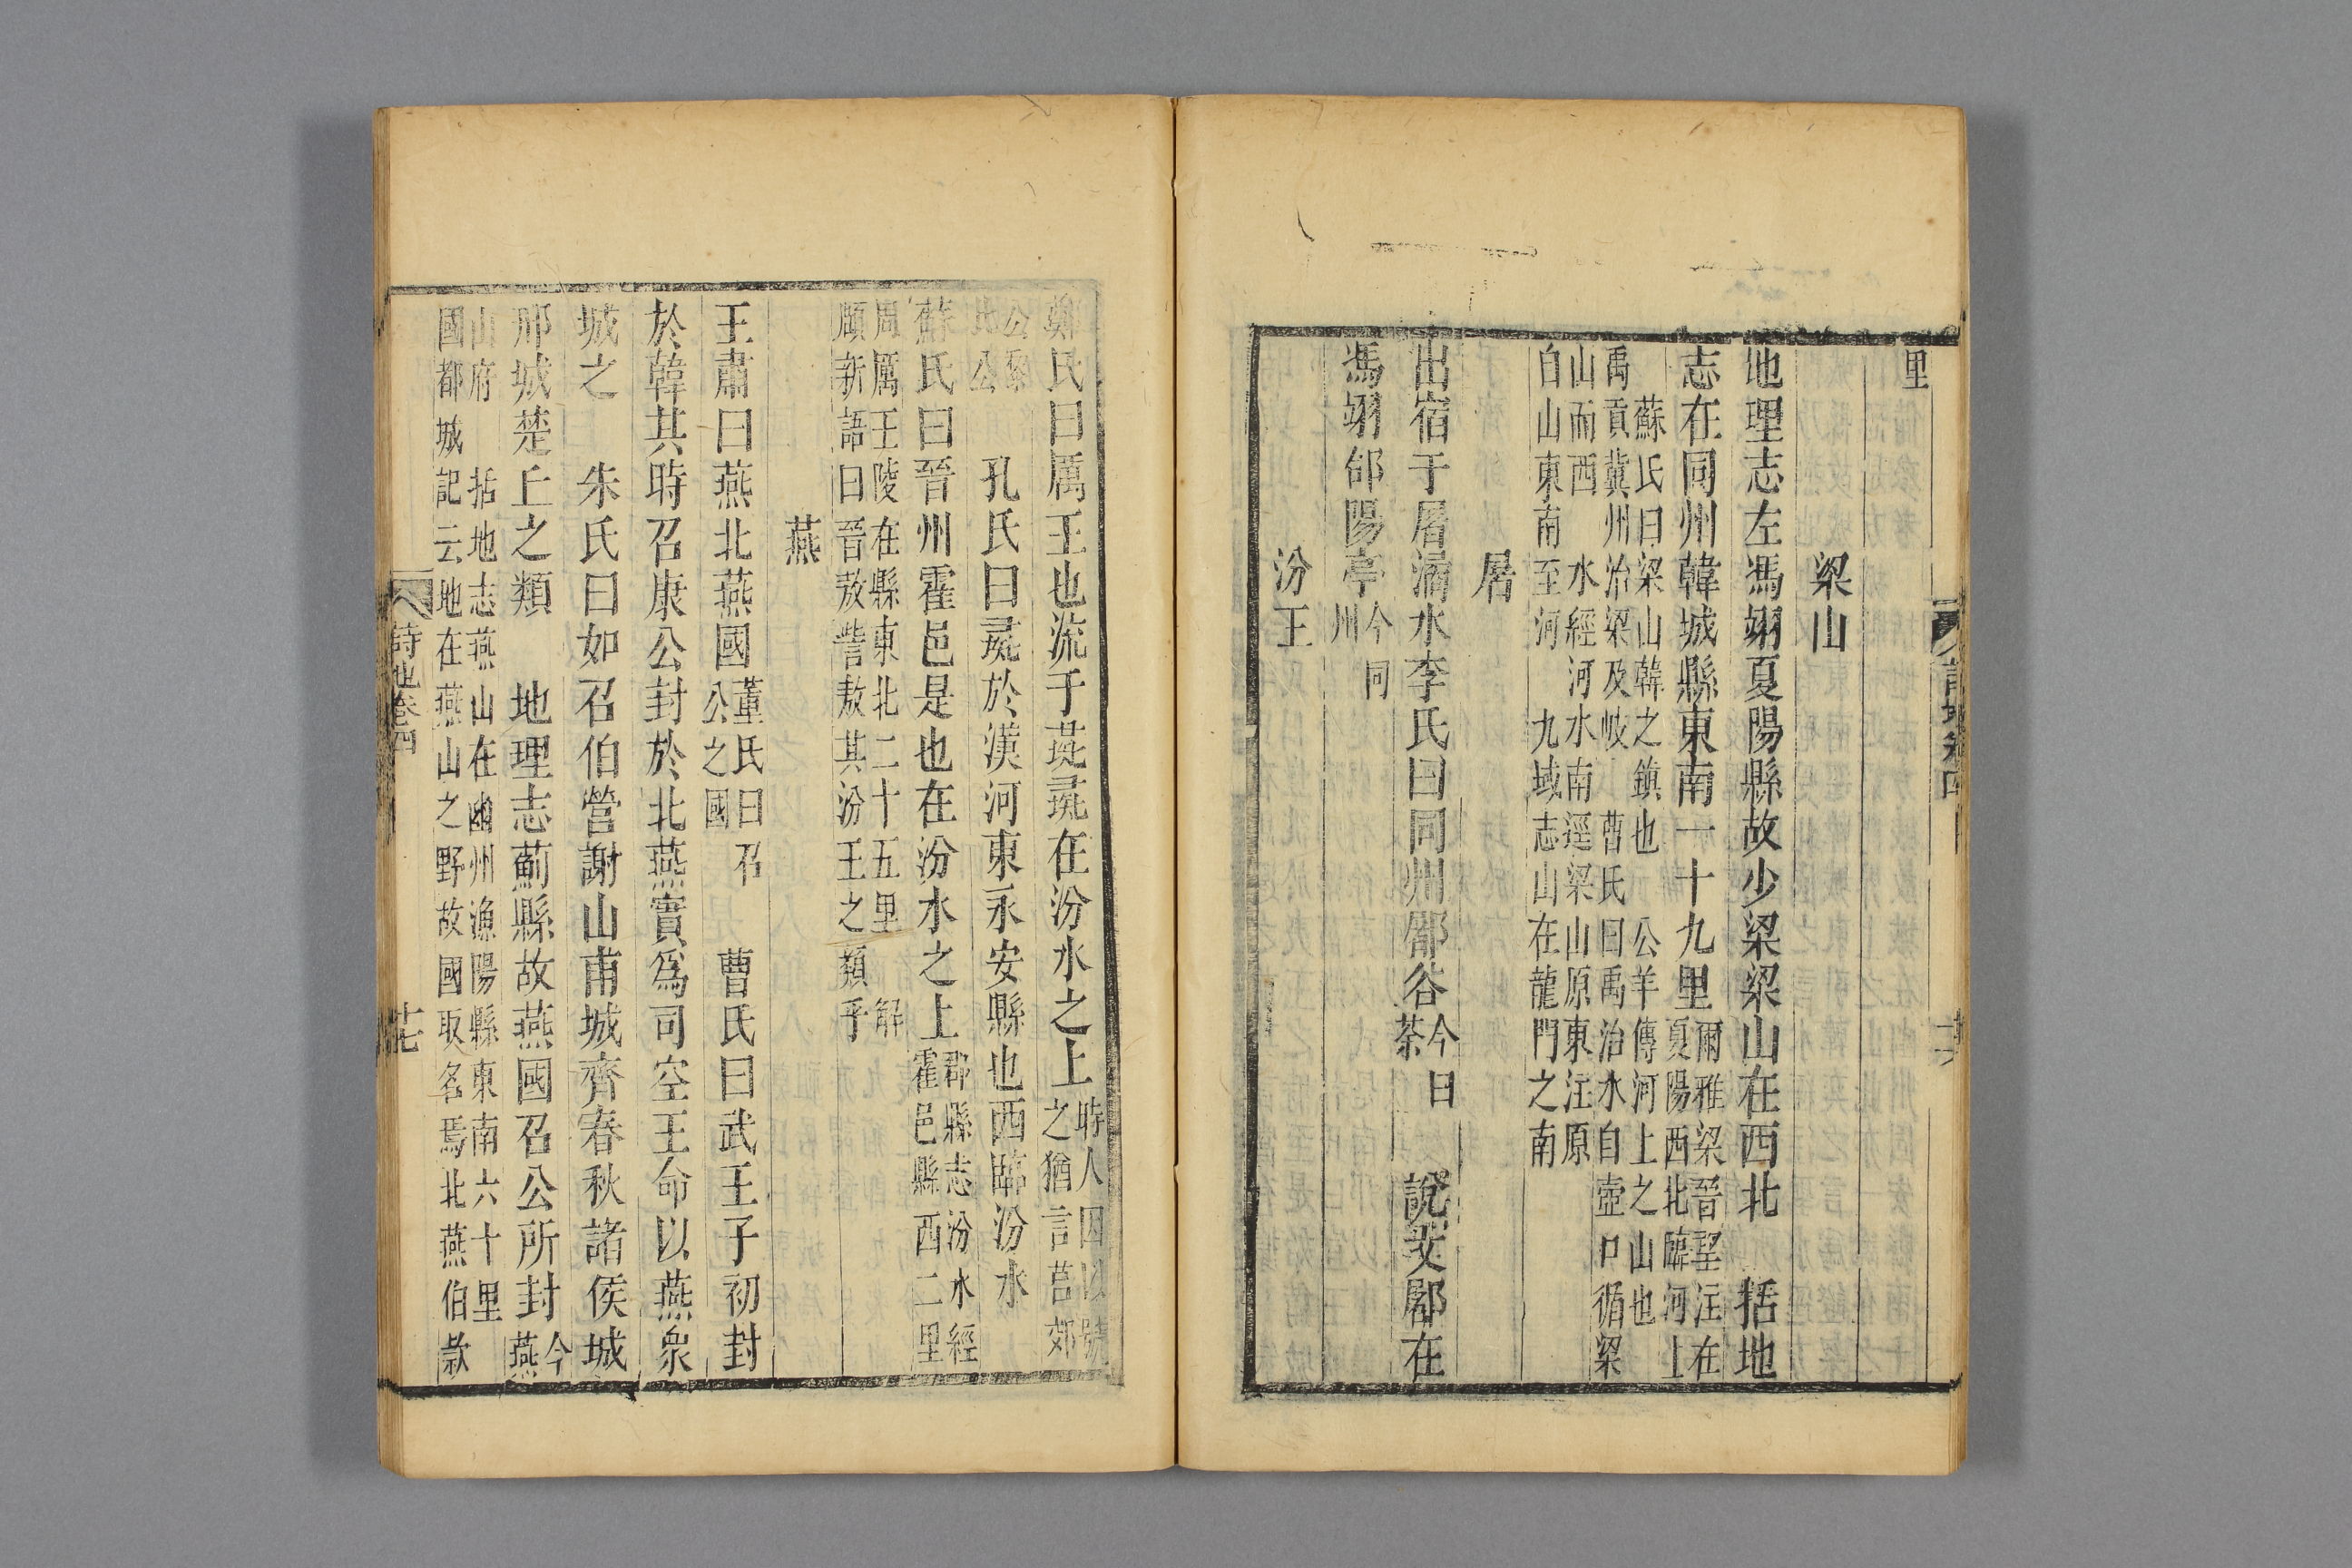 里
梁山
地理志左馮翊夏陽縣故少梁梁山在西北　括地
志在同州韓城縣東南一十九里爾雅梁晉望注在
夏陽西北臨河上
蘇氏曰梁山韓之鎮也　公羊傳河上之山也
禹貢冀州治梁及岐　曹氏曰禹治水自壺口循梁
山而西　水經河水南逕梁山原東注原
白山東南至河　九域志山在龍門之南
屠
出宿于屠潏水李氏曰同州鄜谷今日
荼　說文鄜在
馮翊郃陽亭今同
州
汾王
詩地卷四
鄭氏曰厲王也流于彘彘在汾水之上時人因以號
之猶言莒郊
公黎
比公　孔氏曰彘於漢河東永安縣也西臨汾水
蘇氏曰晉州霍邑是也在汾水之上郡縣志汾水經
霍邑縣西二里
周厲王陵在縣東北二十五里　解
頤新語曰晉敖訾敖其汾王之類乎
燕
王肅曰燕北燕國董氏曰召
公之國　曹氏曰武王子初封
於韓其時召康公封於北燕實爲司空王命以燕衆
城之　朱氏曰如召伯營謝山甫城齊春秋諸侯城
邢城楚丘之類　地理志薊縣故燕國召公所封今
燕
山府　括地志燕山在幽州漁陽縣東南六十里
國都城記云地在燕山之野故國取名焉北燕伯款
詩地卷四
十七